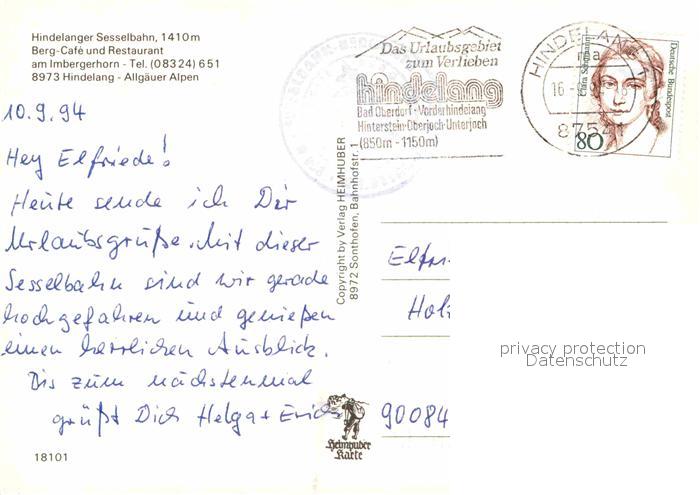 Hindelanger Sesselbahn, 1410m
Berg-Café und Restaurant
am Imbergerhorn - Tel. (08324) 651
8973 Hindelang - Allgäuer Alpen
10.9.94
Hey Elfriede!
Heute sende ich Dir
Urlaubsgrüße. Mit dieser
Sesselbahn sind wir gerade
hochgefahren und genießen
einen herrlichen Ausblick.
Bis zum nächstenmal
grüßt Dich Helga + Erich
18101
Copyright by Verlag HEIMHUBER
8972 Sonthofen, Bahnhofstr. 1
Das Urlaubsgebiet
zum Verlieben
hindelang
Bad Oberdorf · Vorderhindelang
Hinterstein · Oberjoch · Unterjoch
(850m - 1150m)
HINDELANG 1
ma
16.-9.
8754
Clara Schumann
Deutsche Bundespost
80
Elfri
Holz
90084
privacy protection
Datenschutz
Heimhuber
Karte